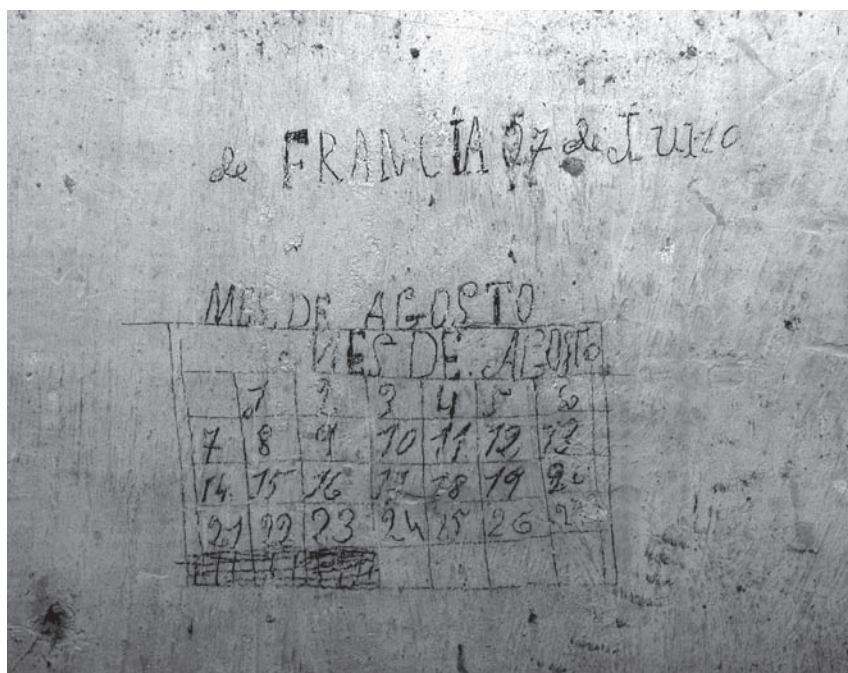 de FRANCIA 27 de Junio
MES DE AGOSTO
MES DE AGOSTO
1 2 3 4 5 6
7 8 9 10 11 12 13
14 15 16 17 18 19 20
21 22 23 24 25 26 2